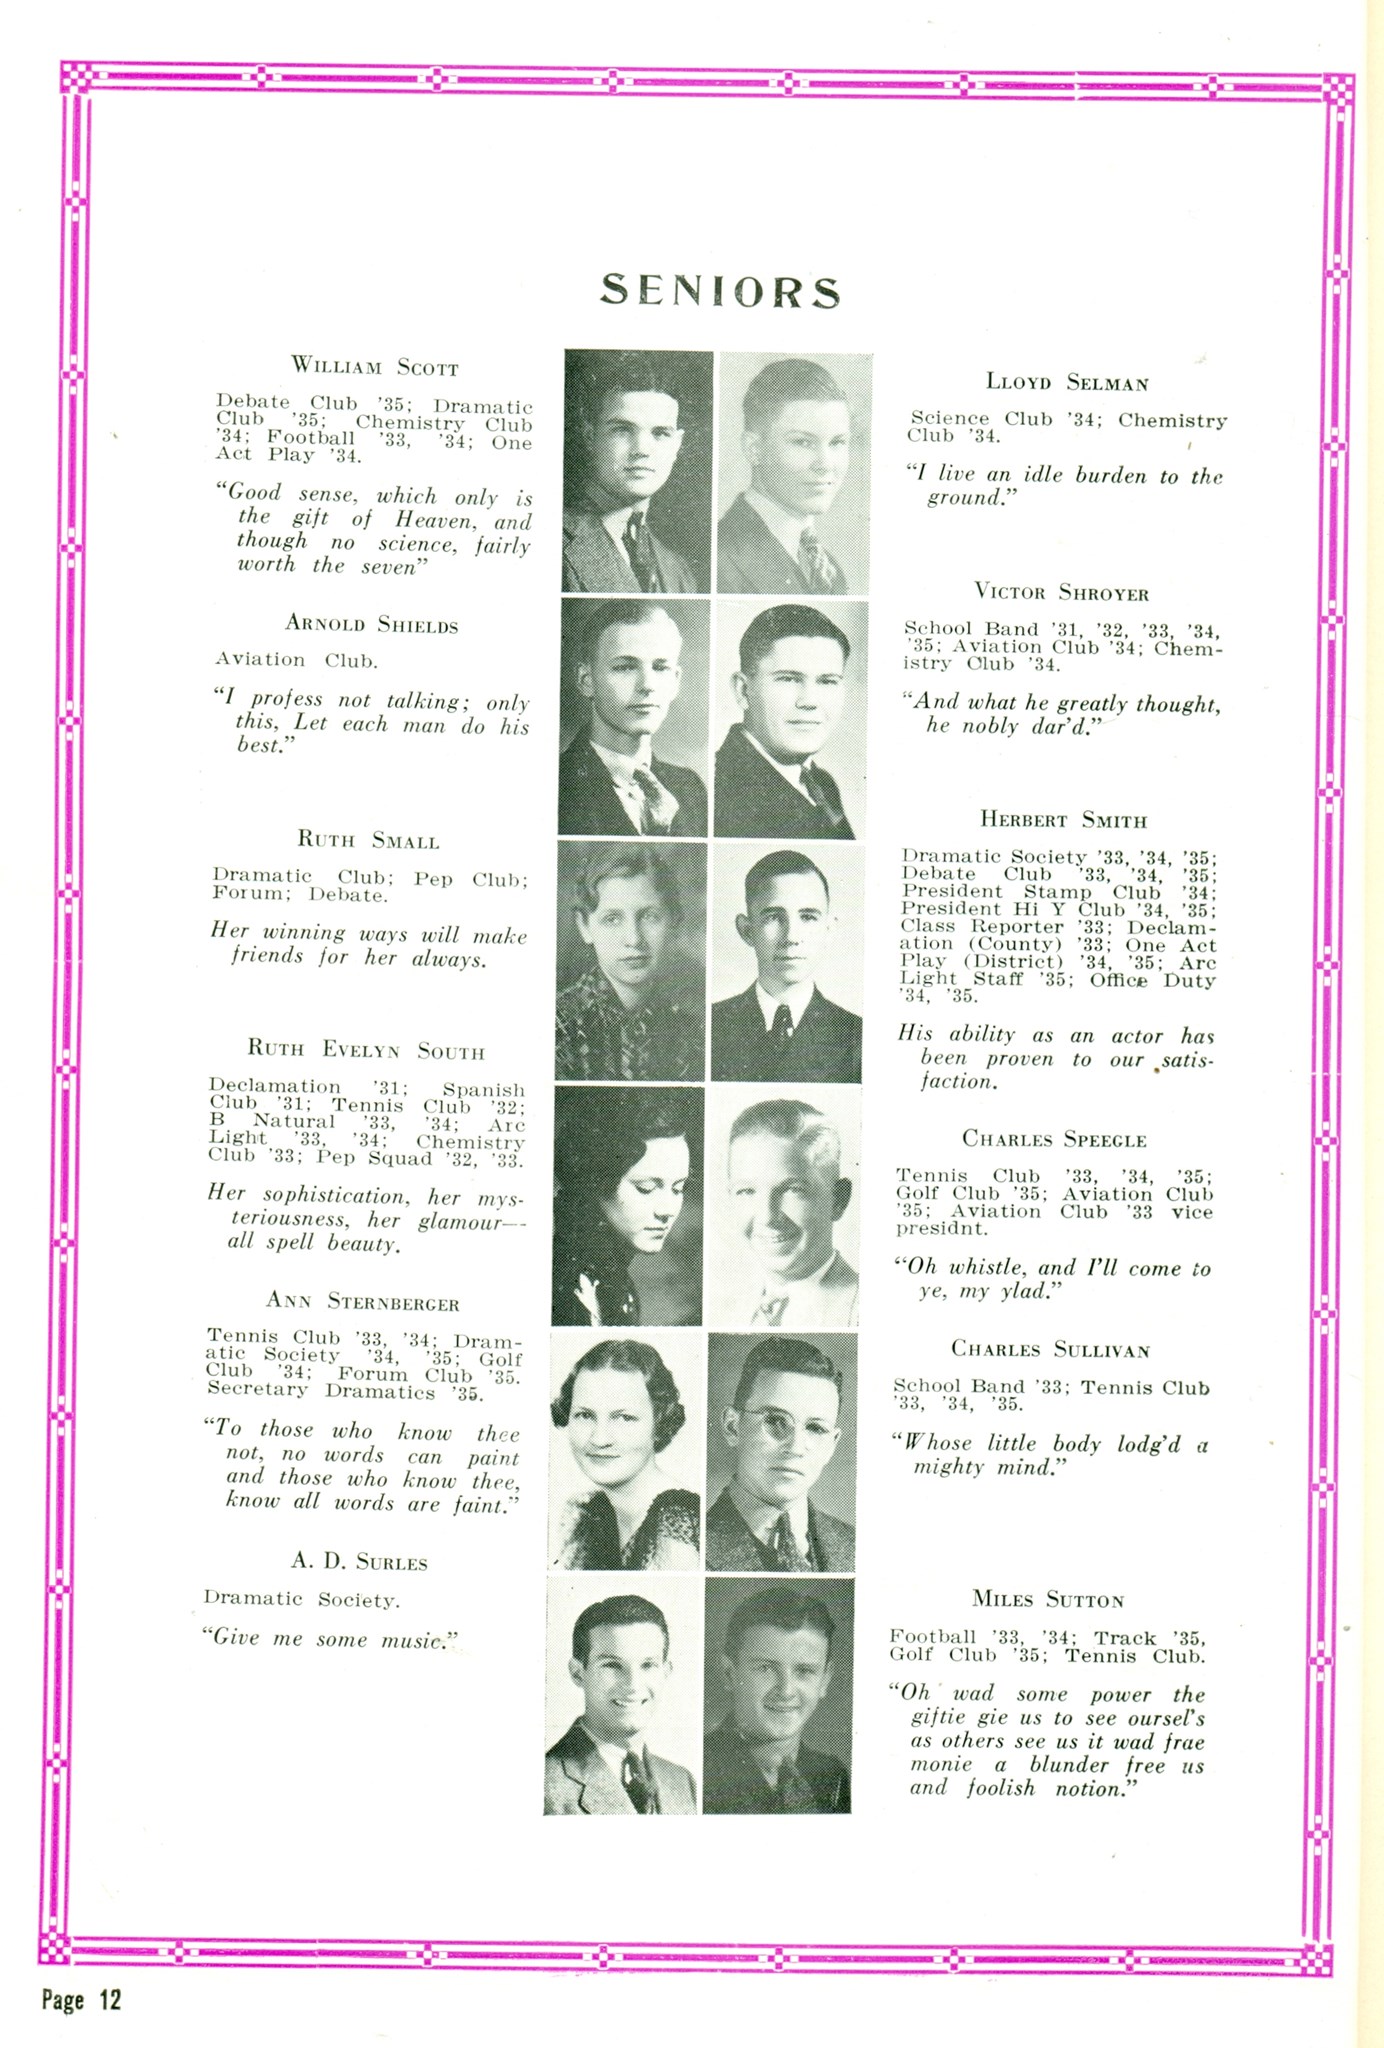 SENIORS
WILLIAM SCOTT
Debate Club '35; Dramatic
Club '35; Chemistry Club
'34; Football '33, '34; One
Act Play '34.
"Good sense, which only is
the gift of Heaven, and
though no science, fairly
worth the seven"
ARNOLD SHIELDS
Aviation Club.
"I profess not talking; only
this, Let each man do his
best."
RUTH SMALL
Dramatic Club; Pep Club;
Forum; Debate.
Her winning ways will make
friends for her always.
RUTH EVELYN SOUTH
Declamation '31; Spanish
Club '31; Tennis Club '32;
B Natural '33, '34; Arc
Light '33, '34; Chemistry
Club '33; Pep Squad '32, '33.
Her sophistication, her mys-
teriousness, her glamour—-
all spell beauty.
ANN STERNBERGER
Tennis Club '33, '34; Dram-
atic Society '34, '35; Golf
Club '34; Forum Club '35.
Secretary Dramatics '35.
"To those who know thee
not, no words can paint
and those who know thee,
know all words are faint."
A. D. SURLES
Dramatic Society.
"Give me some music."
LLOYD SELMAN
Science Club '34; Chemistry
Club '34.
"I live an idle burden to the
ground."
VICTOR SHROYER
School Band '31, '32, '33, '34,
'35; Aviation Club '34; Chem-
istry Club '34.
"And what he greatly thought,
he nobly dar'd."
HERBERT SMITH
Dramatic Society '33, '34, '35;
Debate Club '33, '34, '35;
President Stamp Club '34;
President Hi Y Club '34, '35;
Class Reporter '33; Declam-
ation (County) '33; One Act
Play (District) '34, '35; Arc
Light Staff '35; Office Duty
'34, '35.
His ability as an actor has
been proven to our satis-
faction.
CHARLES SPEEGLE
Tennis Club '33, '34, '35;
Golf Club '35; Aviation Club
'35; Aviation Club '33 vice
presidnt.
"Oh whistle, and I'll come to
ye, my ylad."
CHARLES SULLIVAN
School Band '33; Tennis Club
'33, '34, '35.
"Whose little body lodg'd a
mighty mind."
MILES SUTTON
Football '33, '34; Track '35,
Golf Club '35; Tennis Club.
"Oh wad some power the
giftie gie us to see oursel's
as others see us it wad frae
monie a blunder free us
and foolish notion."
Page 12